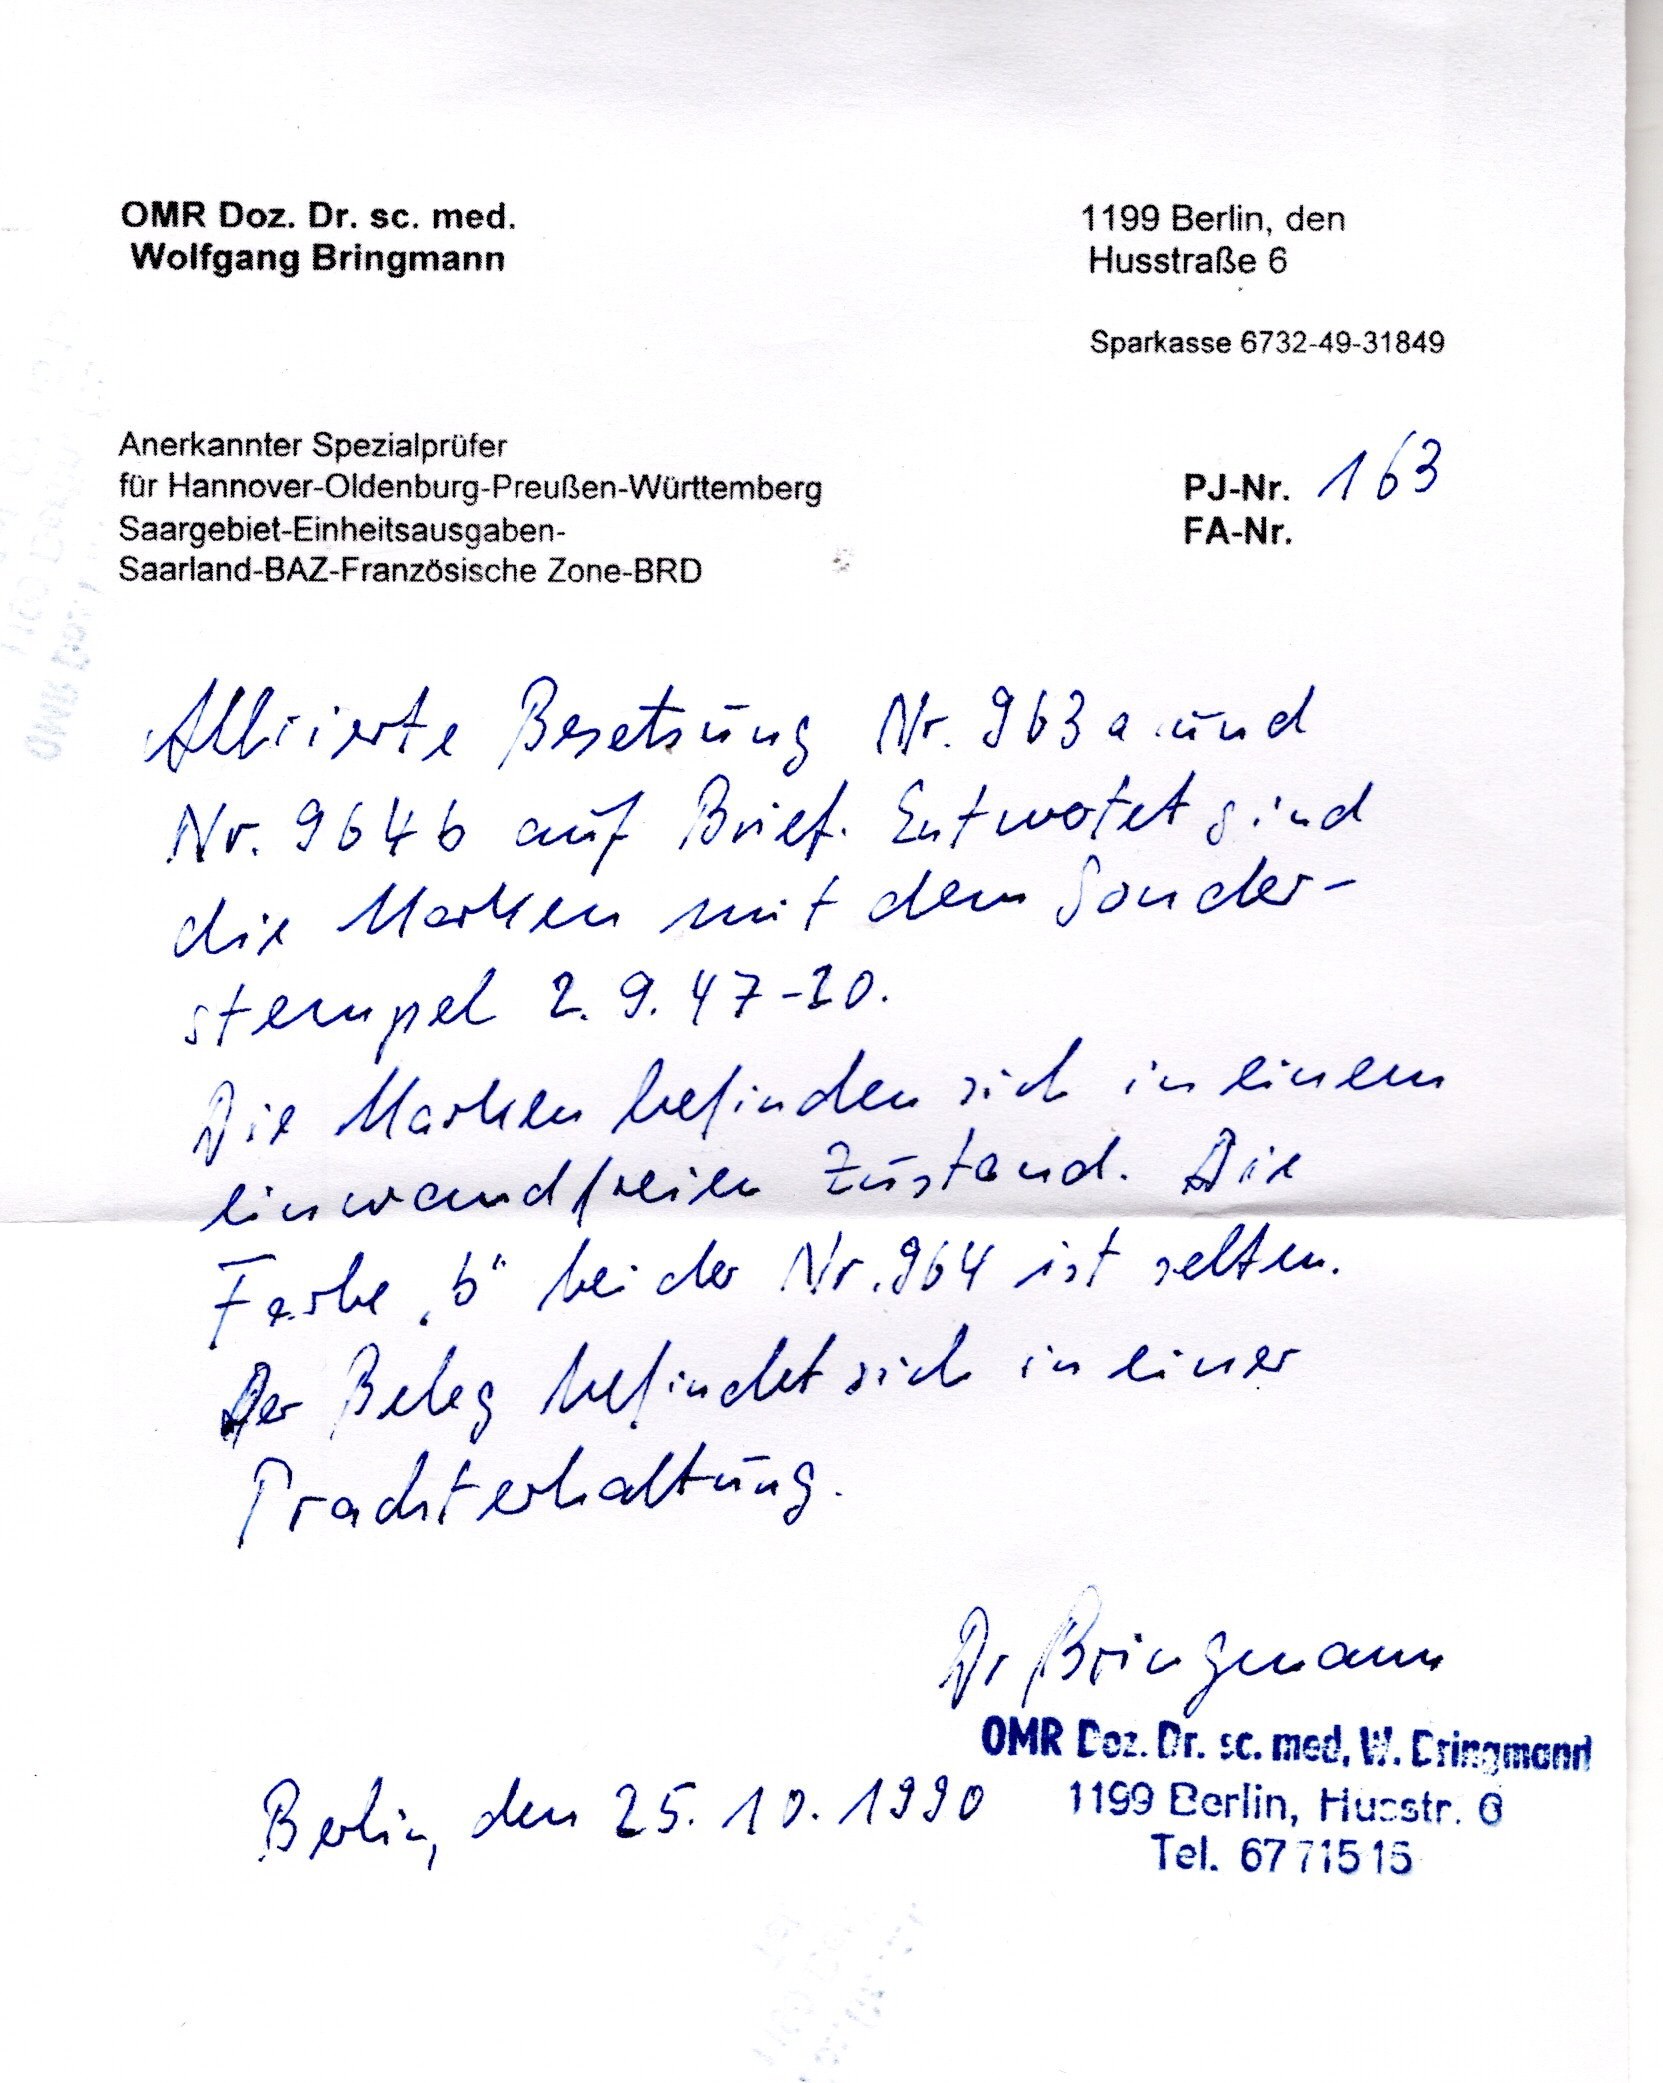 OMR Doz. Dr. sc. med.
Wolfgang Bringmann
1199 Berlin, den
Husstraße 6
Sparkasse 6732-49-31849
Anerkannter Spezialprüfer
für Hannover-Oldenburg-Preußen-Württemberg
Saargebiet-Einheitsausgaben-
Saarland-BAZ-Französische Zone-BRD
PJ-Nr. 163
FA-Nr.
Alliierte Besetzung Nr. 963 a und
Nr. 964 b auf Brief. Entwertet sind
die Marken mit dem Sonder-
stempel 2.9.47-20.
Die Marken befinden sich in einem
einwandfreien Zustand. Die
Farbe „b" bei der Nr. 964 ist selten.
Der Beleg befindet sich in einer
Prachterhaltung.
Dr Bringmann
OMR Doz. Dr. sc. med. W. Bringmann
1199 Berlin, Husstr. 6
Tel. 6771515
Berlin, den 25.10.1990